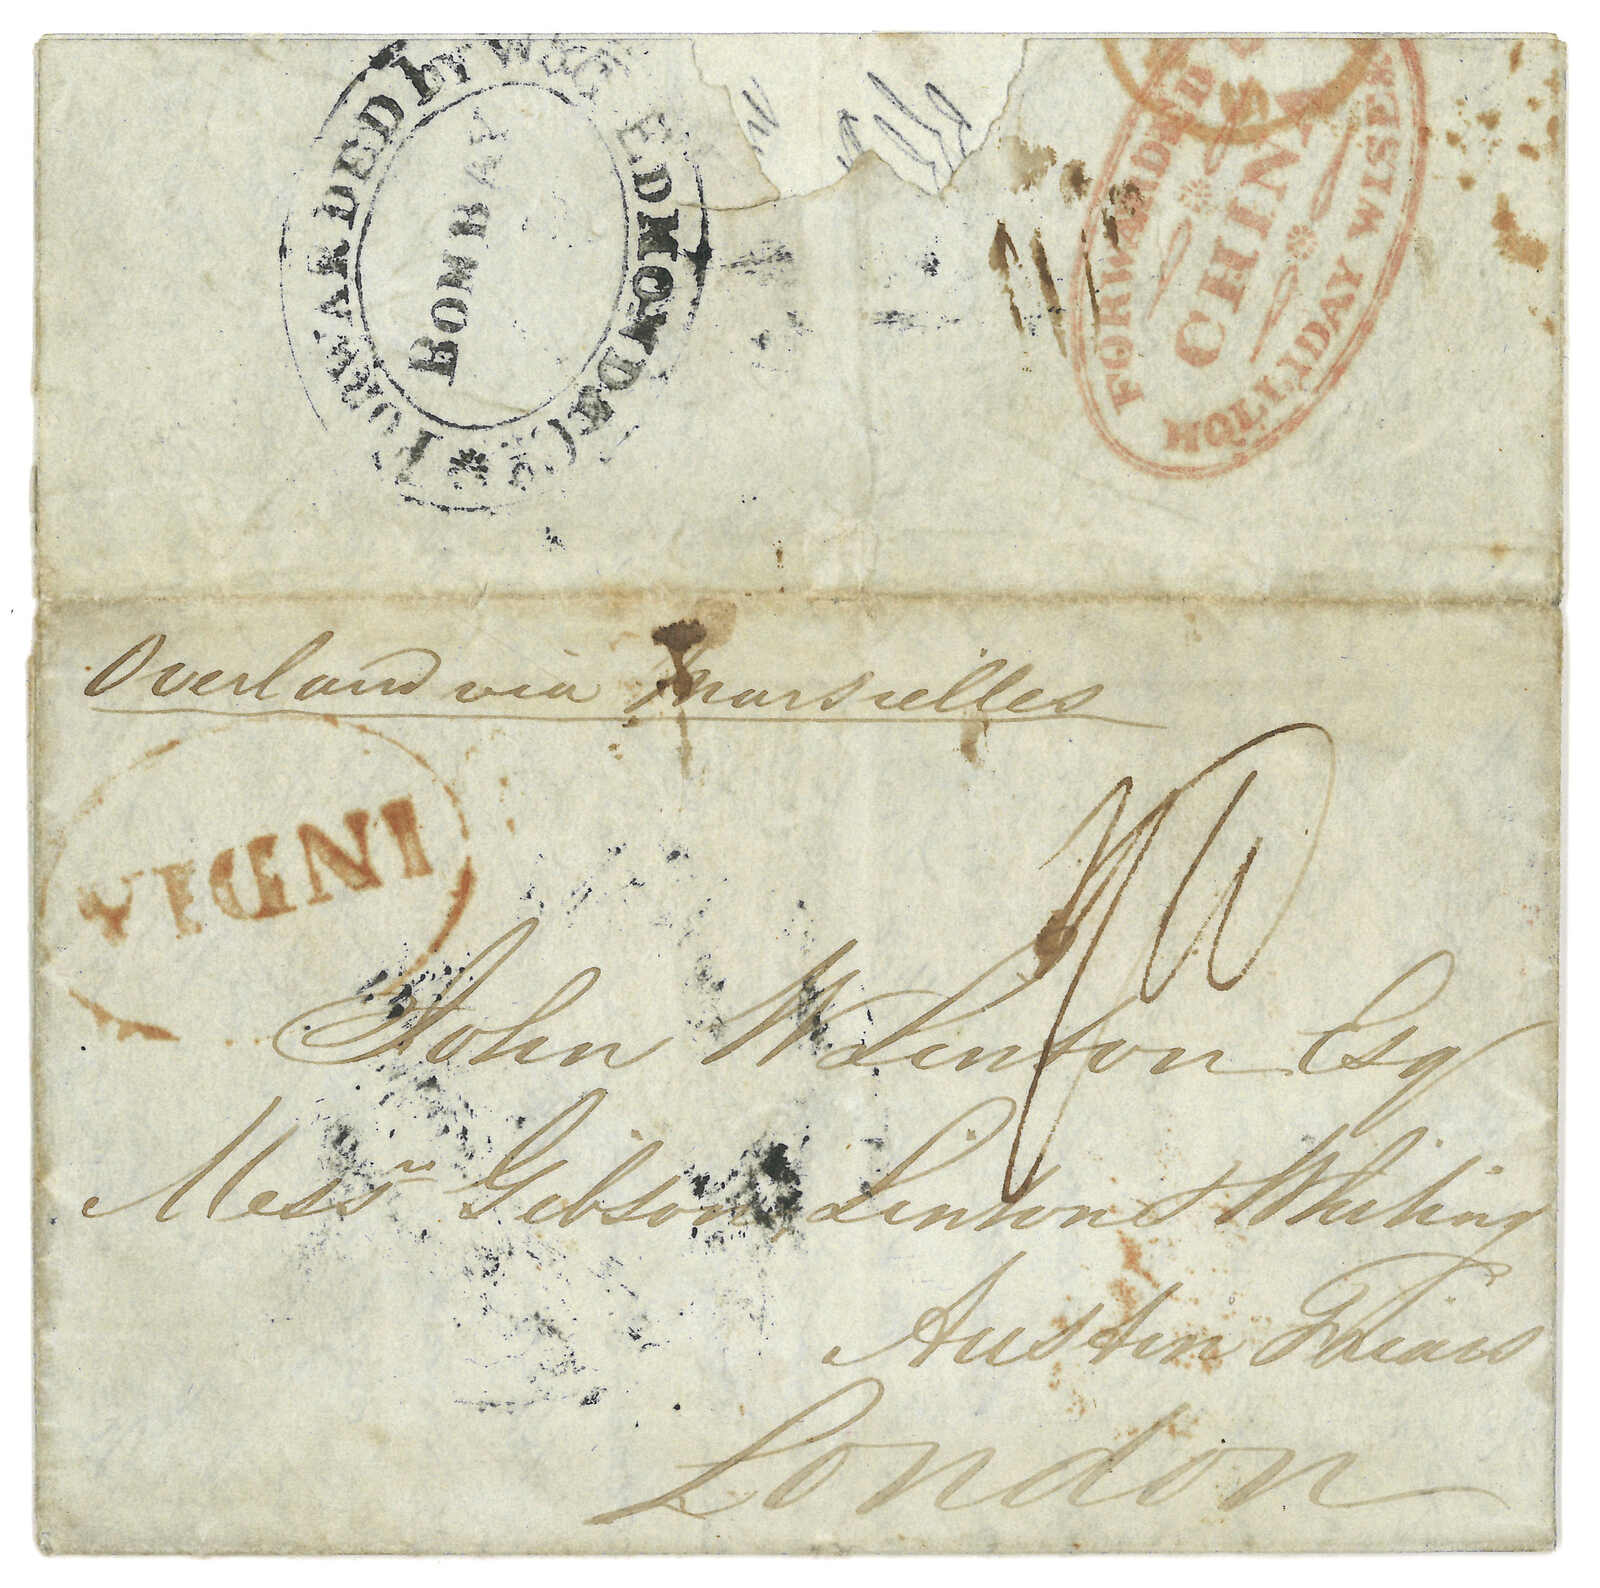 FORWARDED by W & C EDMOND & Co
BOMBAY
FORWARDED
CHINA
HOLLIDAY WISE &
Overland via Marseilles
INDIA
John W Linton Esq
Messrs Gibson, Linton & Whiting
Austin Friars
London